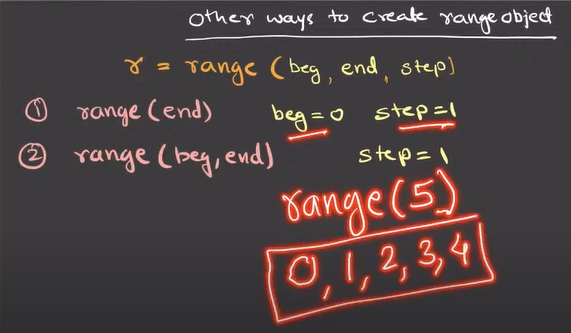 Other ways to create range object
r = range (beg, end, step)
① range (end) beg = 0 step = 1
② range (beg, end) step = 1
range (5)
0, 1, 2, 3, 4